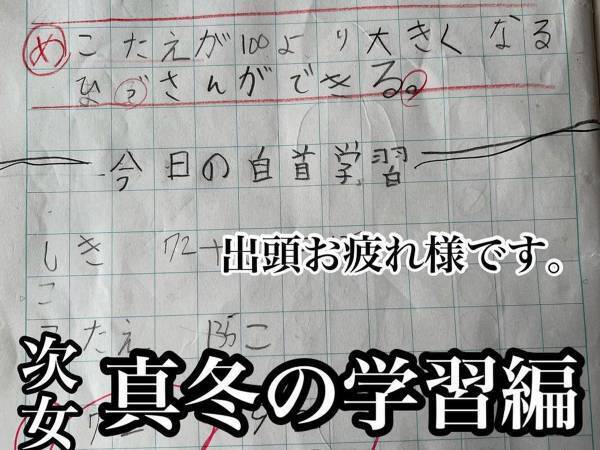 め こたえが100より大きくなる
ひっさんができる。
今日の自首学習
しき 72+
出頭お疲れ様です。
こたえ 135こ
次女
真冬の学習編